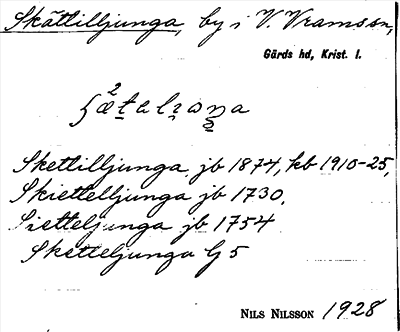 Skättilljunga, by i V. Vramssn,
Gärds hd, Krist. l.
Skettilljunga jb 1874, kb 1910-25,
Skiettelljunga jb 1730,
Sietteljunga jb 1754
Sketteljunga G 5
NILS NILSSON 1928